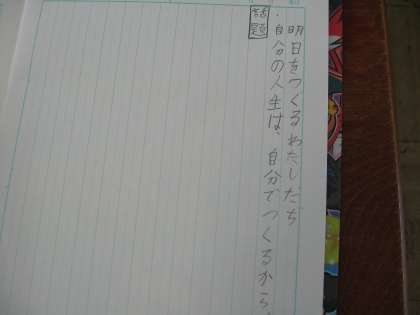 明日をつくるわたしたち
・自分の人生は、自分でつくるから、
話題